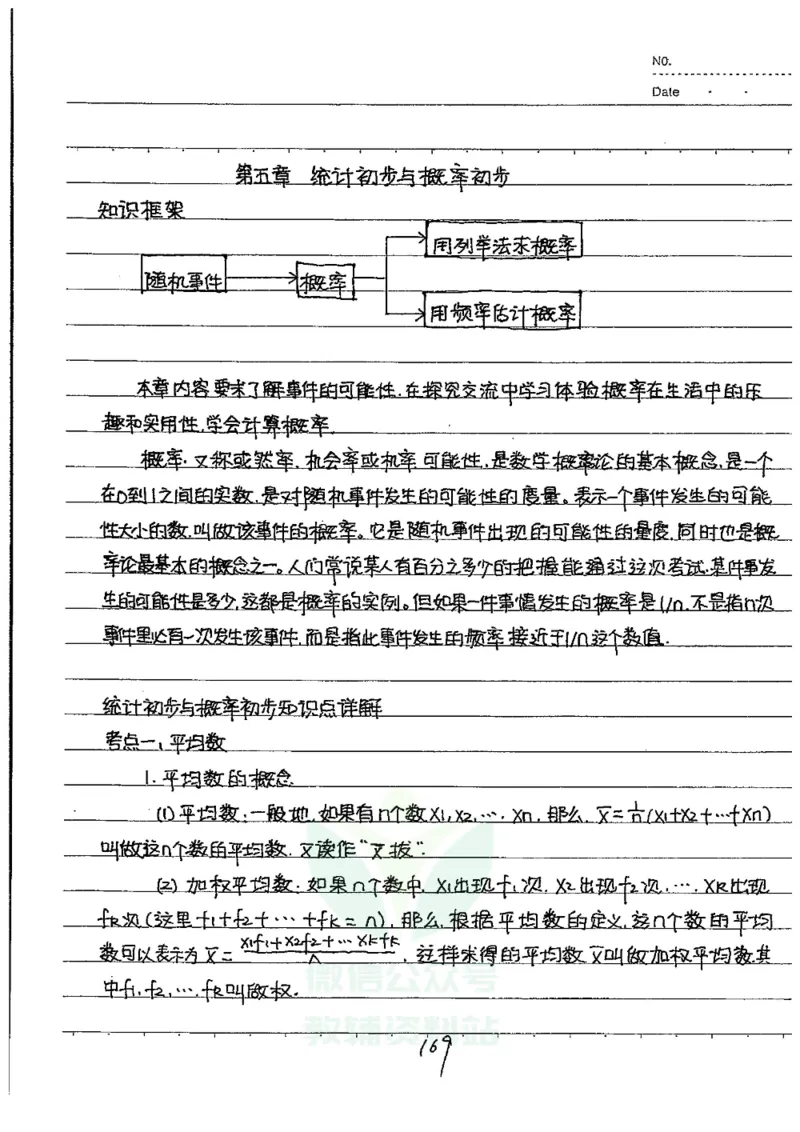 NO.
Date
第五章 统计初步与概率初步
知识框架
用列举法求概率
随机事件
概率
用频率估计概率
本章内容要求了解事件的可能性,在探究交流中学习体验概率在生活中的乐
趣和实用性,学会计算概率.
概率.又称或然率,机会率或机率可能性,是数学概率论的基本概念,是一个
在0到1之间的实数,是对随机事件发生的可能性的度量。表示一个事件发生的可能
性大小的数,叫做该事件的概率。它是随机事件出现的可能性的量度,同时也是概
率论最基本的概念之一。人们常说某人有百分之多少的把握能通过这次考试,某件事发
生的可能性是多少,这都是概率的实例。但如果一件事情发生的概率是1/n,不是指n次
事件里必有一次发生该事件,而是指此事件发生的频率接近于1/n这个数值.
统计初步与概率初步知识点详解
考点一、平均数
1.平均数的概念
(1)平均数:一般地,如果有n个数x1,x2,…,xn,那么,x̄=1/n(x1+x2+…+xn)
叫做这n个数的平均数,x̄读作“x拔”.
(2)加权平均数:如果n个数中,x1出现f1次,x2出现f2次,…,xk出现
fk次(这里f1+f2+…+fk=n),那么,根据平均数的定义,这n个数的平均
数可以表示为x̄=(x1f1+x2f2+…xkfk)/n,这样求得的平均数x̄叫做加权平均数,其
中f1,f2,…,fk叫做权.
微信公众号
教辅资料站
169